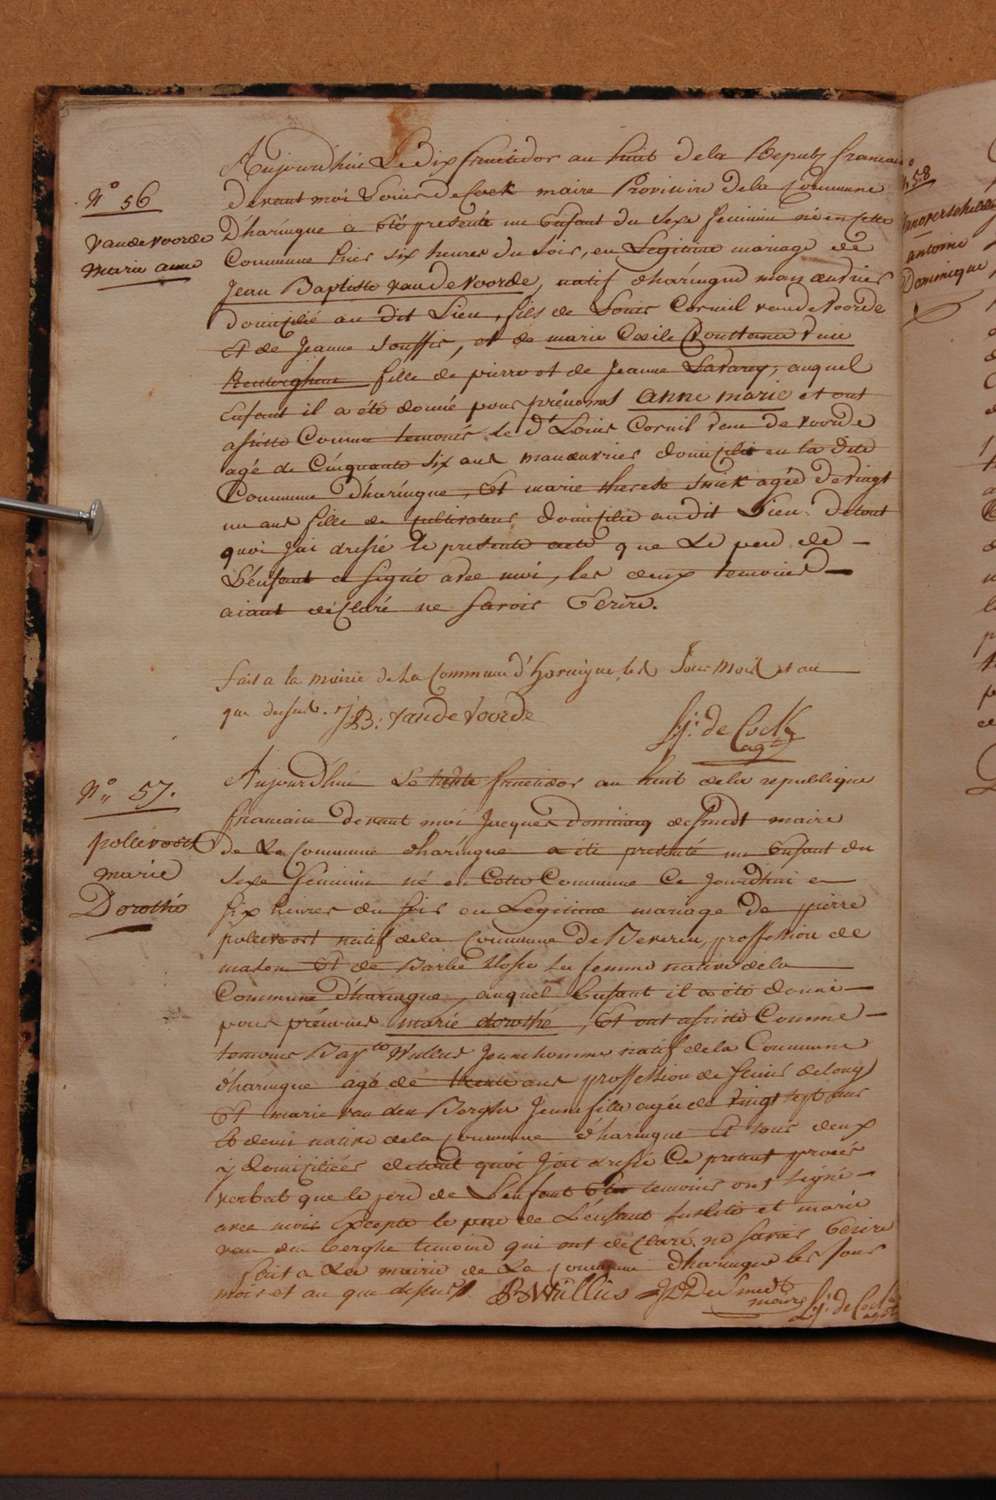 N° 56
vandevoorde
Marie anne
Aujourd'hui Le dix fructidor an huit dela Republ francais
devant moi Louis DeCock maire Provisoire dela Commune
D'haringue a été presenté un Enfant du Sexe feminin né en cette
Commune hier six heures du soir, en Legitime mariage de
Jean Baptiste van de Voorde, natif d'haringue manouvrier
domicilié au dit Lieu, fils de Louis Corneil vande Voorde
Et de Jeanne Souffis, et de marie Cecile Constance
fille de pierre et de Jeanne auquel
Enfant il a été donné pour prénoms anne marie et ont
assisté Comme temoins le dt Louis Corneil vande voorde
agé de Cinquante six ans manouvrier domicilié en la Dite
Commune d'haringue, Et marie therese agée de vingt
un ans fille de Cultivateur domicilié au dit Lieu. detout
quoi J'ai dressé le presente acte que Le pere de
L'enfant a signé avec moi, les deux temoins
aiant déClaré ne savoir Ecrire.
fait a la mairie de La Commune d'haringue, les Jour mois et an
que dessus. J,B: Van de Voorde
L,j: de Cock
agt
N° 57.
pollevoost
marie
Dorothé
Aujourd'hui Le trente fructidor an huit dela republique
francaise devant moi Jacques Dominicq deSmedt maire
de La Commune d'haringue a été presenté un Enfant du
Sexe féminin né en Cette Commune Ce Jourdhui a
six heures du soir en Legitime mariage de pierre
pollevoost natif dela Commune De Beveren, proffession de
mason Et de Barbe sa femme native dela
Commune D'haringue, auquel Enfant il a été donné
pour prénoms marie dorothé, Et ont assisté Comme
temoins Bapte Willius Jeune homme natif dela Commune
d'haringue agé de trente ans proffession de
Et marie van den Berghe Jeune fille agée de vingt sept ans
Et demi native dela Commune d'haringue Et tous deux
y domiciliées detout quoi J'ai dressé Ce présent procès
verbal que le pere de L'enfant Et les temoins ont signé
avec moi Excepté le pere de L'enfant susdite et marie
van den berghe temoins qui ont déClaré ne savoir Ecrire
fait a La mairie de La Commune d'haringue les Jour
mois et an que dessus
B Willius J D DeSmedt
maire
L,j: de Cock
agt
N 58
antoine
Dominique